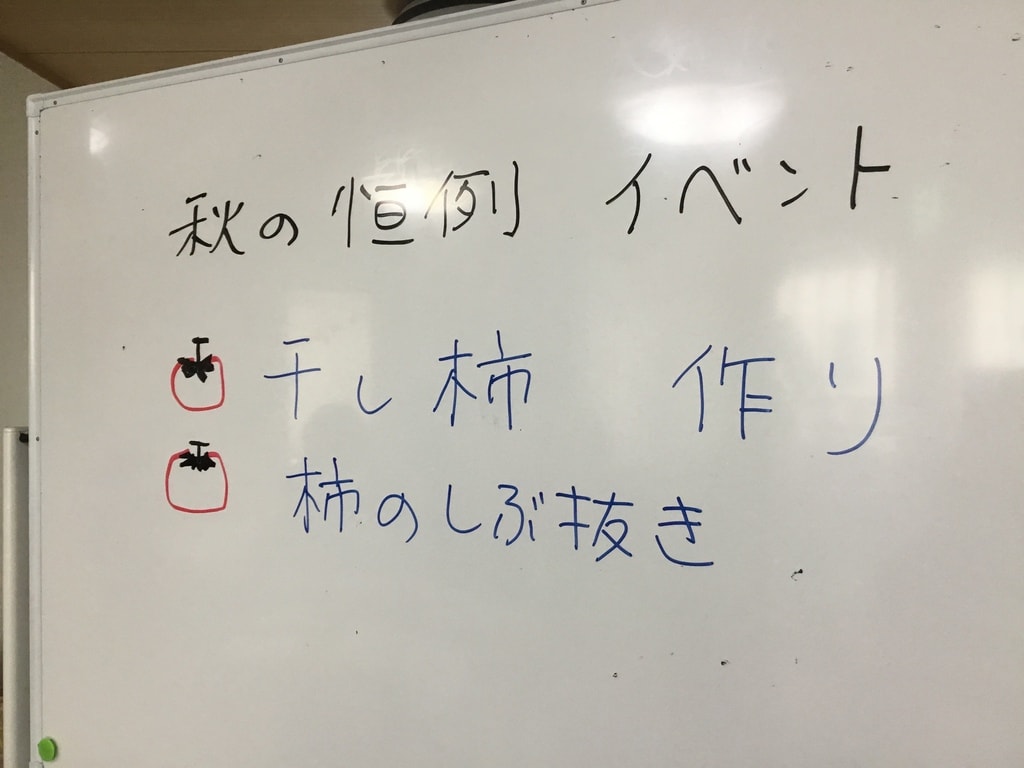 秋の恒例 イベント
干し柿 作り
柿のしぶ抜き